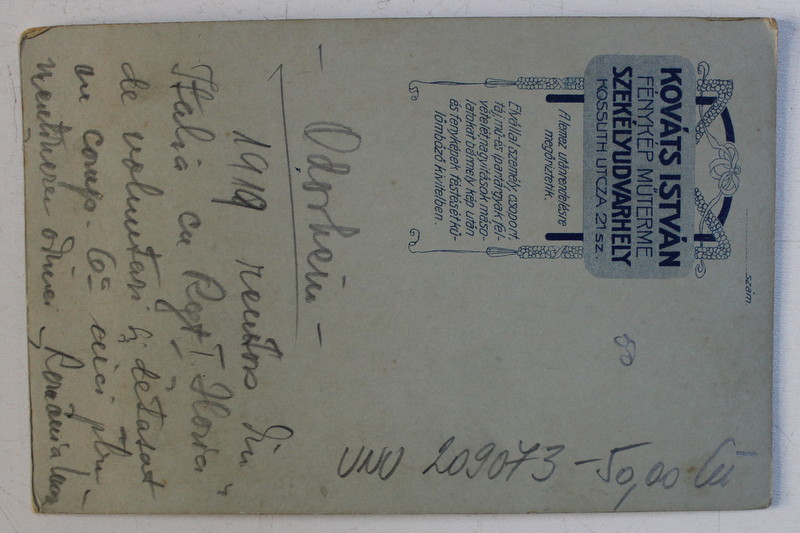 KOVÁTS ISTVÁN
FÉNYKÉP MŰTERME
SZEKÉLYUDVARHELY
KOSSUTH UTCZA 21 SZ.
szám.
A lemez utánrendelésre
megőriztetik.
Elvállal személy, csoport,
táj, mű és iparitárgyak fel-
vételét, nagyítások máso-
latokat bármely kép után
és fényképek festését kü-
lömböző kivitelben.
50
50
– Odorheiu –
1919 rentors din
Italia cu Regt. I. "Horia"
de voluntari și detașat
cu comp. 6a aici
România
UNU 209073 – 50,00 lei